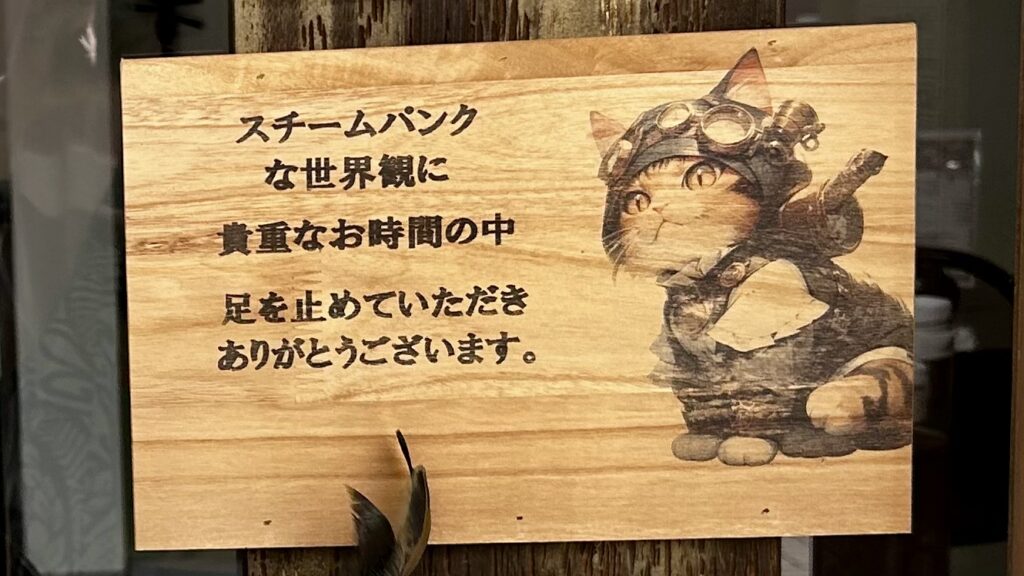 スチームパンク
な世界観に
貴重なお時間の中
足を止めていただき
ありがとうございます。